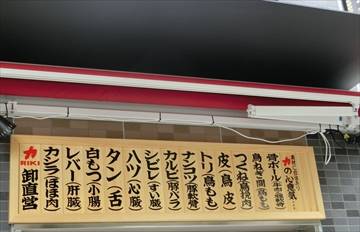 力の心意気…
骨ボール(牛・豚・軟骨)
鳥ねぎこ間(鳥もも)
つくね(鳥挽肉)
皮(鳥皮)
トリ(鳥もも)
ナンコツ(豚軟骨)
カルビ(豚バラ)
シビレ(すい臓)
ハツ(心臓)
タン(舌)
白もつ(小腸)
レバー(肝臓)
カシラ(ほほ肉)
力
RIKI
卸直営